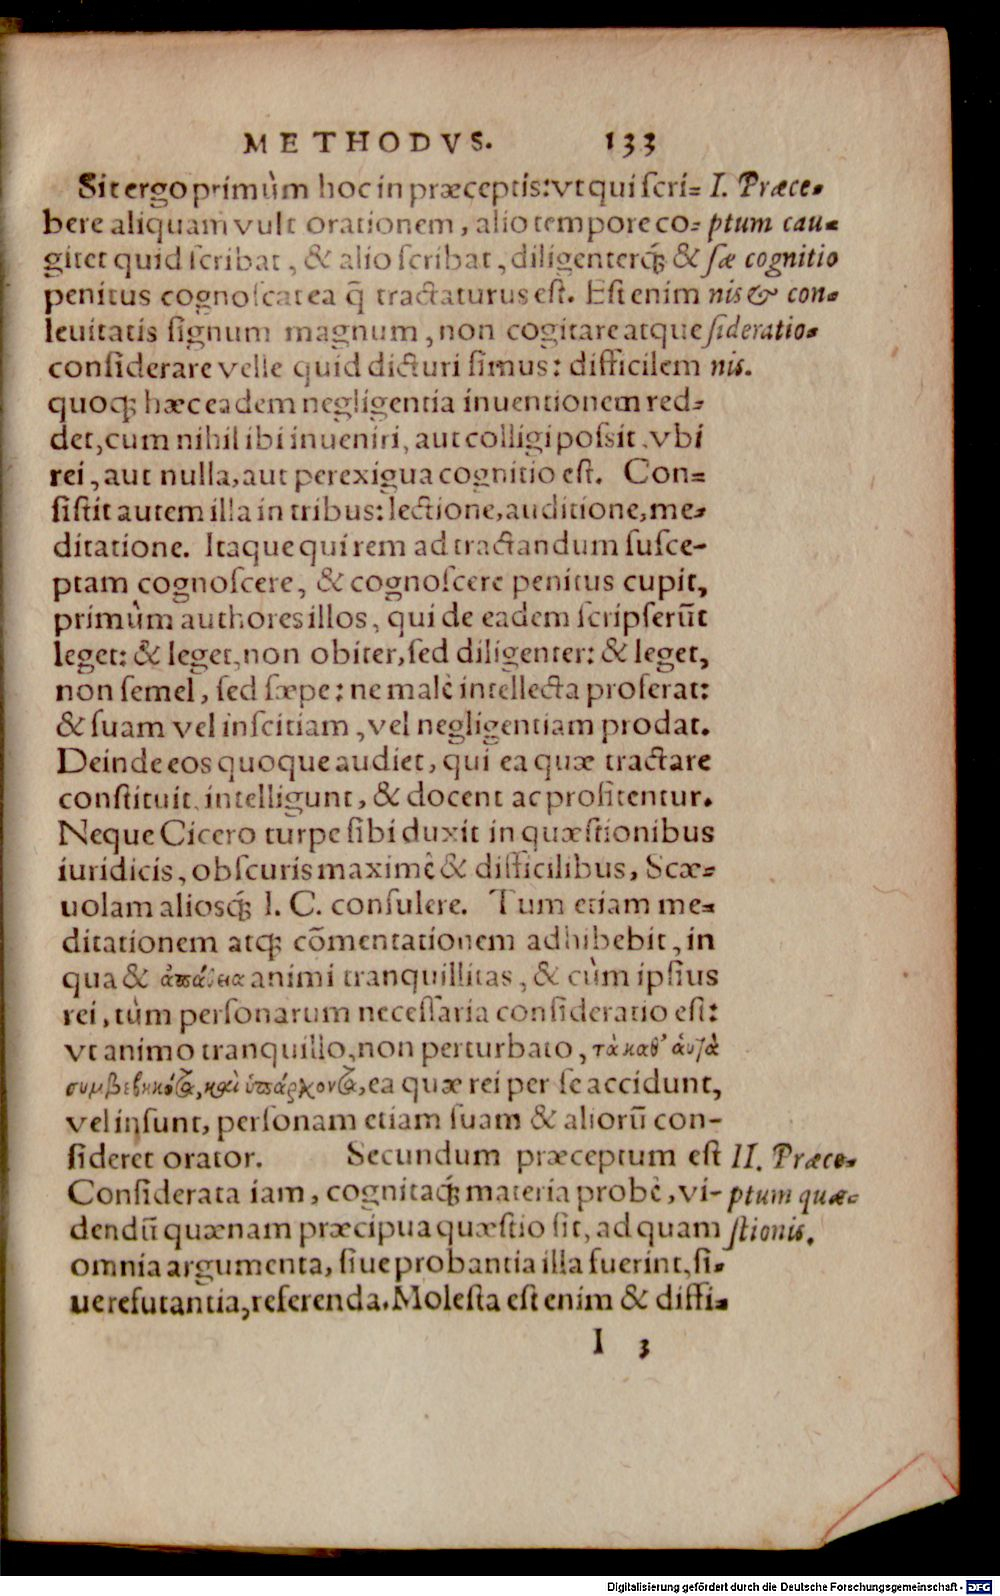 METHODVS. 133
Sit ergo primùm hoc in præceptis: vt qui scri-
bere aliquam vult orationem, alio tempore co-
gitet quid scribat, & alio scribat, diligenterq́; &
penitus cognoscat ea q̄ tractaturus est. Est enim
leuitatis signum magnum, non cogitare atque
considerare velle quid dicturi simus: difficilem
quoq; hæc eadem negligentia inuentionem red-
det, cum nihil ibi inueniri, aut colligi possit, vbi
rei, aut nulla, aut perexigua cognitio est. Con-
sistit autem illa in tribus: lectione, auditione, me-
ditatione. Itaque qui rem ad tractandum susce-
ptam cognoscere, & cognoscere penitus cupit,
primùm authores illos, qui de eadem scripserūt
leget: & leget, non obiter, sed diligenter: & leget,
non semel, sed sæpe: ne malè intellecta proferat:
& suam vel inscitiam, vel negligentiam prodat.
Deinde eos quoque audiet, qui ea quæ tractare
constituit, intelligunt, & docent ac profitentur.
Neque Cicero turpe sibi duxit in quæstionibus
iuridicis, obscuris maximè & difficilibus, Scæ-
uolam aliosq́; I. C. consulere. Tum etiam me-
ditationem atq; cōmentationem adhibebit, in
qua & ἀπάθεια animi tranquillitas, & cùm ipsius
rei, tùm personarum necessaria consideratio est:
vt animo tranquillo, non perturbato, τὰ καθ' ἁυτὰ
συμβεβηκότα, καὶ ὑπάρχοντα, ea quæ rei per se accidunt,
vel insunt, personam etiam suam & aliorū con-
sideret orator. Secundum præceptum est
Considerata iam, cognitaq́; materia probè, vi-
dendū quænam præcipua quæstio sit, ad quam
omnia argumenta, siue probantia illa fuerint, si-
ue refutantia, referenda. Molesta est enim & diffi-
I 3
I. Præce-
ptum cau-
sæ cognitio
nis & con-
sideratio-
nis.
II. Præce-
ptum quæ-
stionis.
Digitalisierung gefördert durch die Deutsche Forschungsgemeinschaft - DFG